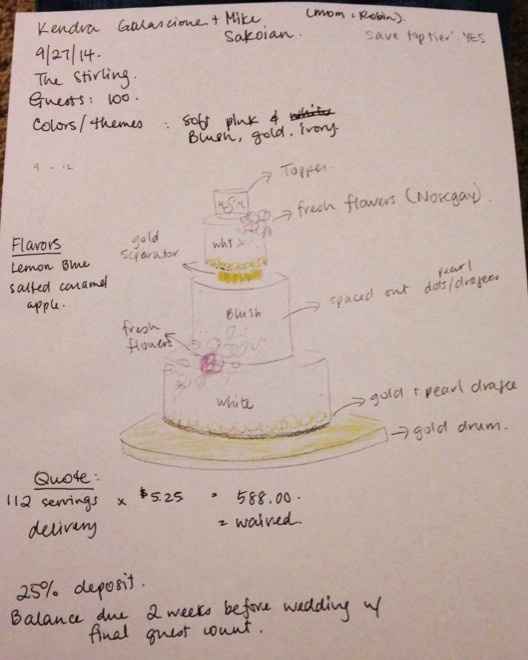 Kendra Galascione + Mike Sakoian.
(mom: Robin).
Save top tier: YES
9/27/14.
The Stirling.
Guests: 100.
Colors/themes : soft pink & white
Blush, gold, ivory
9 - 12
Topper.
fresh flowers (Nosegay).
white
gold
separator
Flavors
Lemon Blue
salted caramel
apple.
Blush
spaced out pearl dots/dragees
fresh
flowers
white
gold & pearl dragee
gold drum.
Quote:
112 servings x $5.25 = 588.00.
delivery = waived.
25% deposit.
Balance due 2 weeks before wedding w/
final guest count.